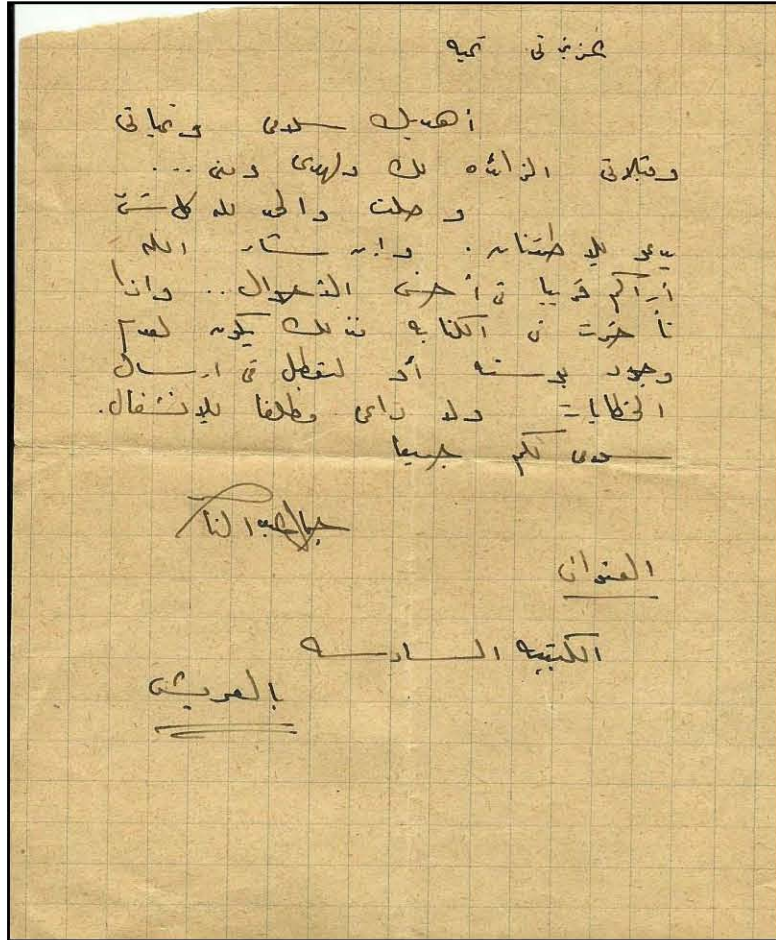 عزيزتى تحيه
أهديك سلامى وتحياتى
وقبلاتى الزائده لك ولهدى ومنى ...
وصلت والحمد لله كل شىء
يدعو للاطمئنان. وإن شاء الله
أراكم قريبا فى أحسن الأحوال .. واذا
تأخرت فى الكتابه فذلك يكون لعدم
وجود بوسته أو لتعطل فى ارسال
الخطابات ولا داعى مطلقا للانشغال.
سلامى لكم جميعا
جمال عبد الناصر
العنوان
الكتيبه السادسه
بالعريش